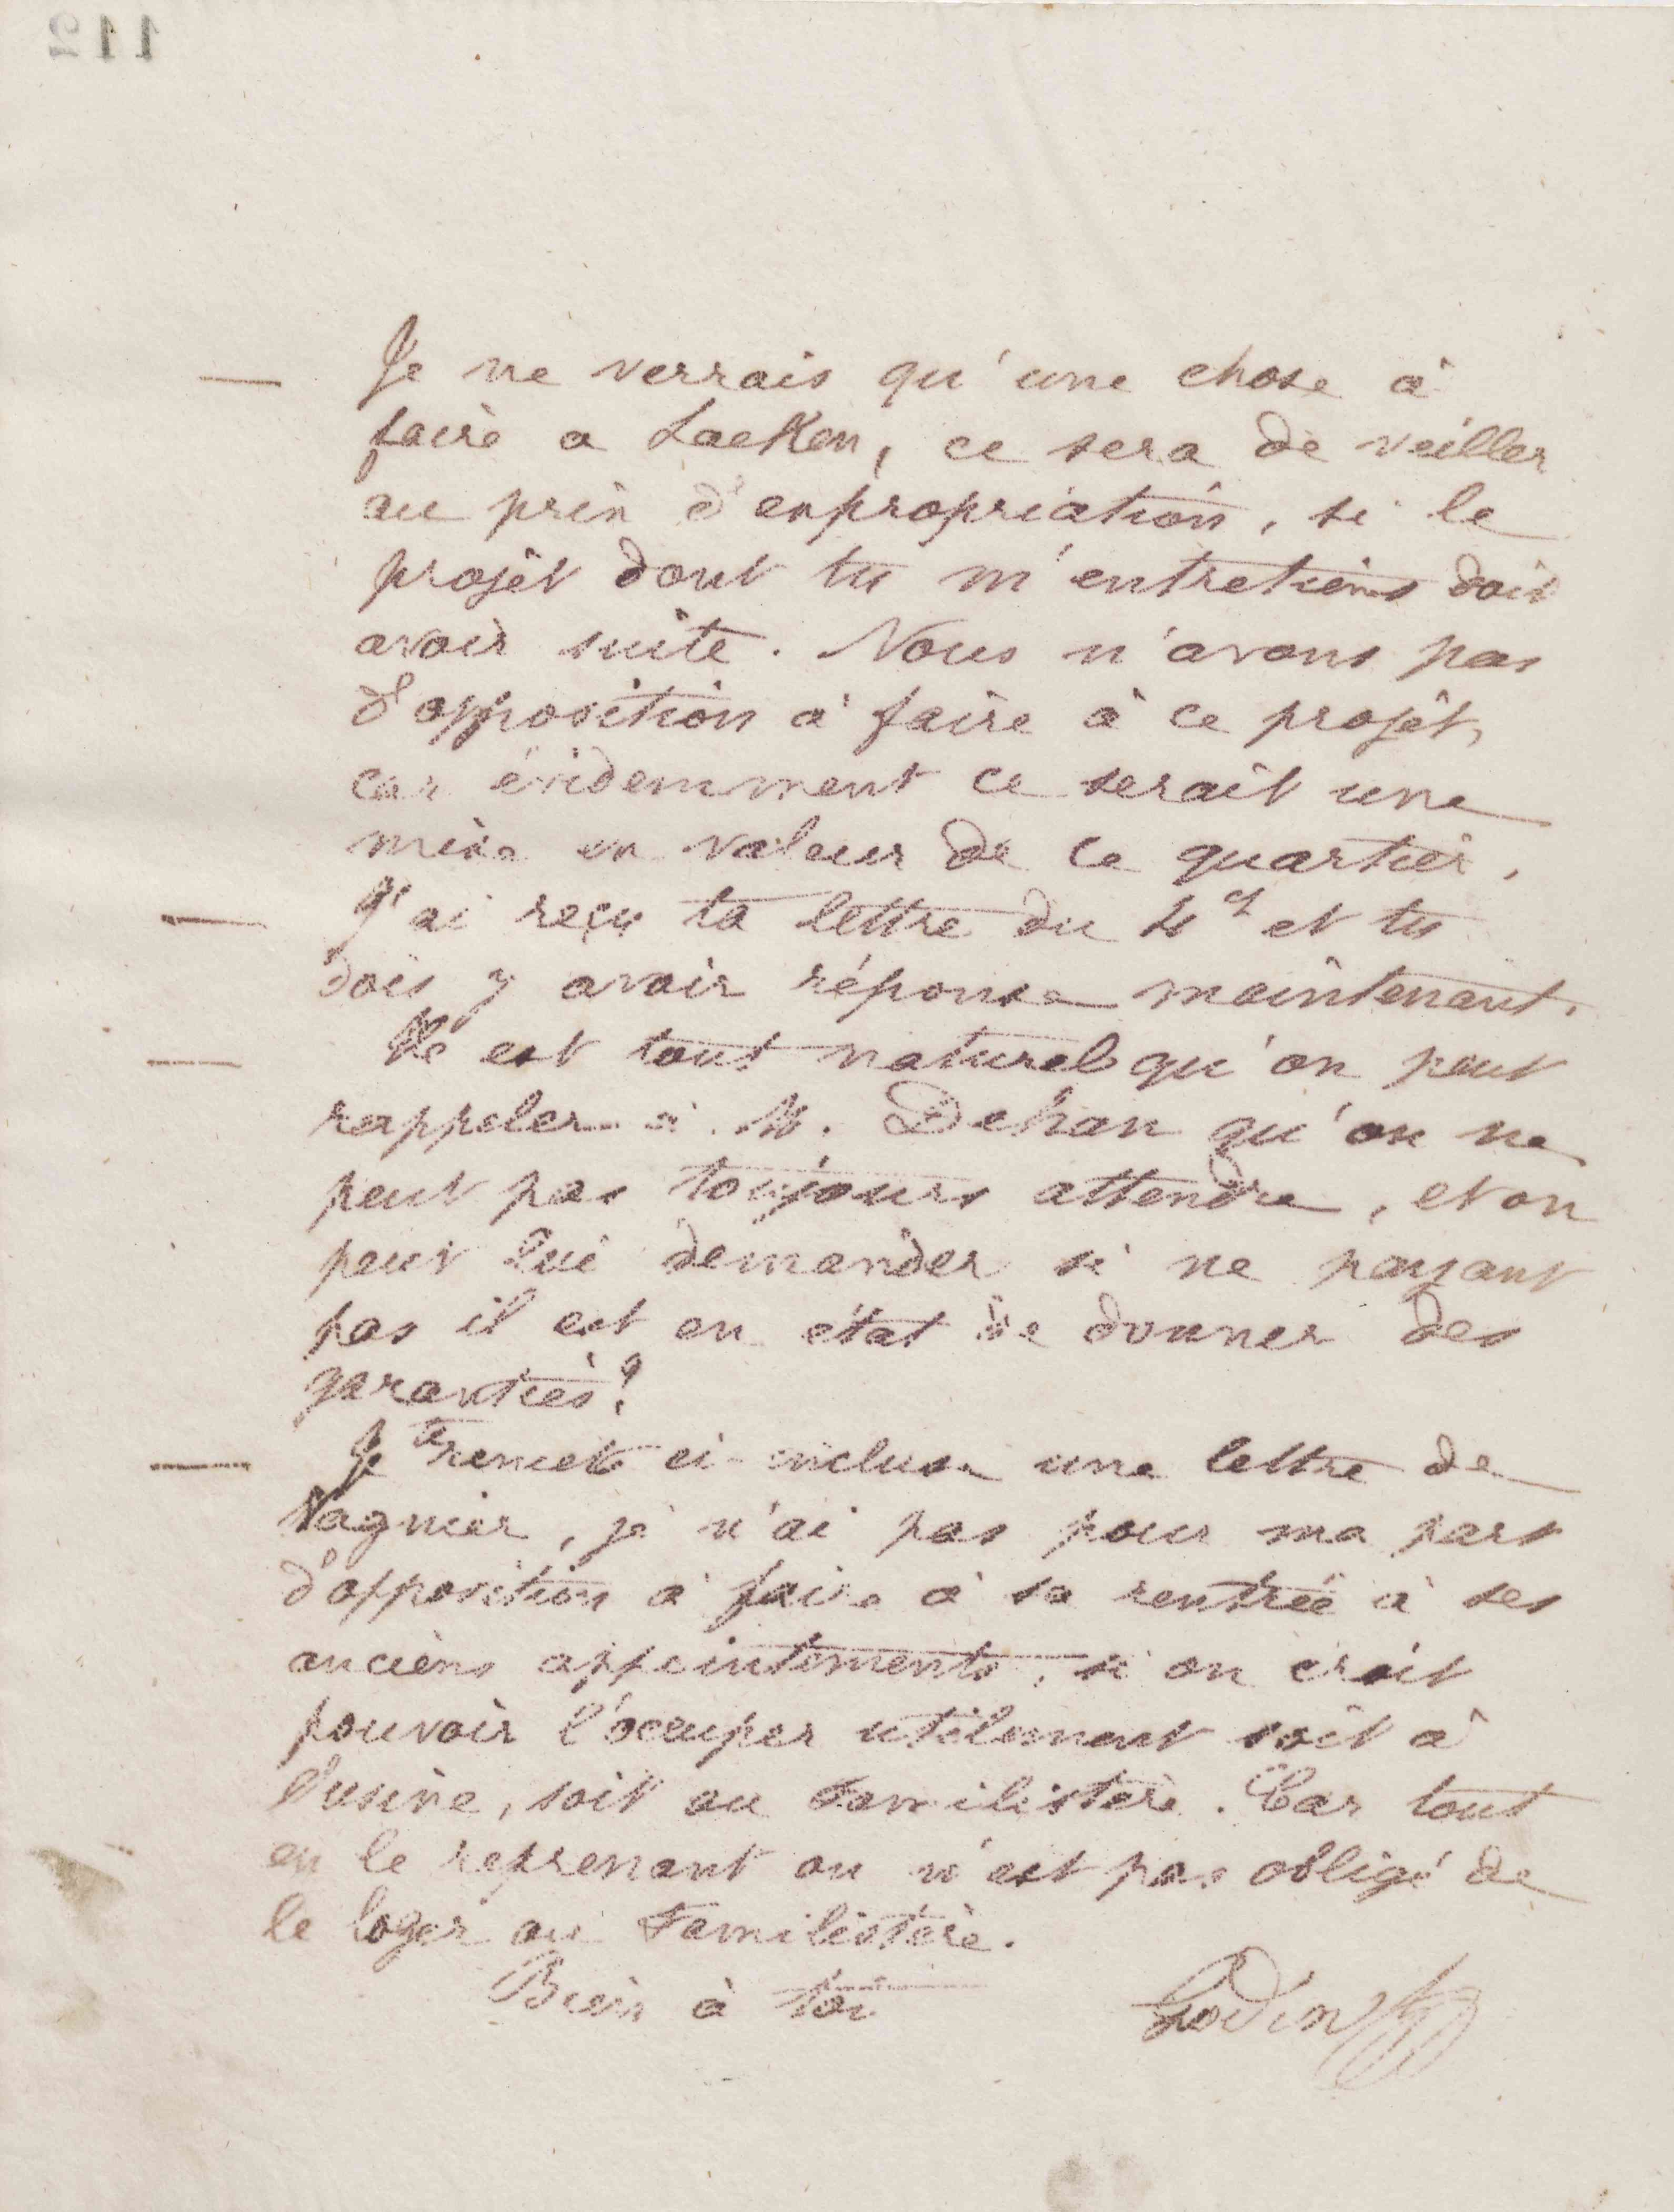 112
— Je ne verrais qu'une chose à
faire a Laeken, ce sera de veiller
au prix d'expropriation, si le
projet dont tu m'entretiens doit
avoir suite. Nous n'avons pas
d'opposition à faire à ce projet,
car évidemment ce serait une
mise en valeur de ce quartier.
— J'ai reçu ta lettre du 4 et et tu
dois y avoir réponse maintenant.
— Il est tout naturel qu'on peut
rappeler à M. Dehan qu'on ne
peut pas toujours attendre, et on
peut lui demander si ne payant
pas il est en état de donner des
garanties?
— Je te remets ci-incluse une lettre de
Vagnier, je n'ai pas pour ma part
d'opposition à faire à sa rentrée à ses
anciens appointements, si on croit
pouvoir l'occuper utilement soit à
l'usine, soit au Familistère. Car tout
en le reprenant on n'est pas obligé de
le loger au Familistère.
Bien à toi
Godin